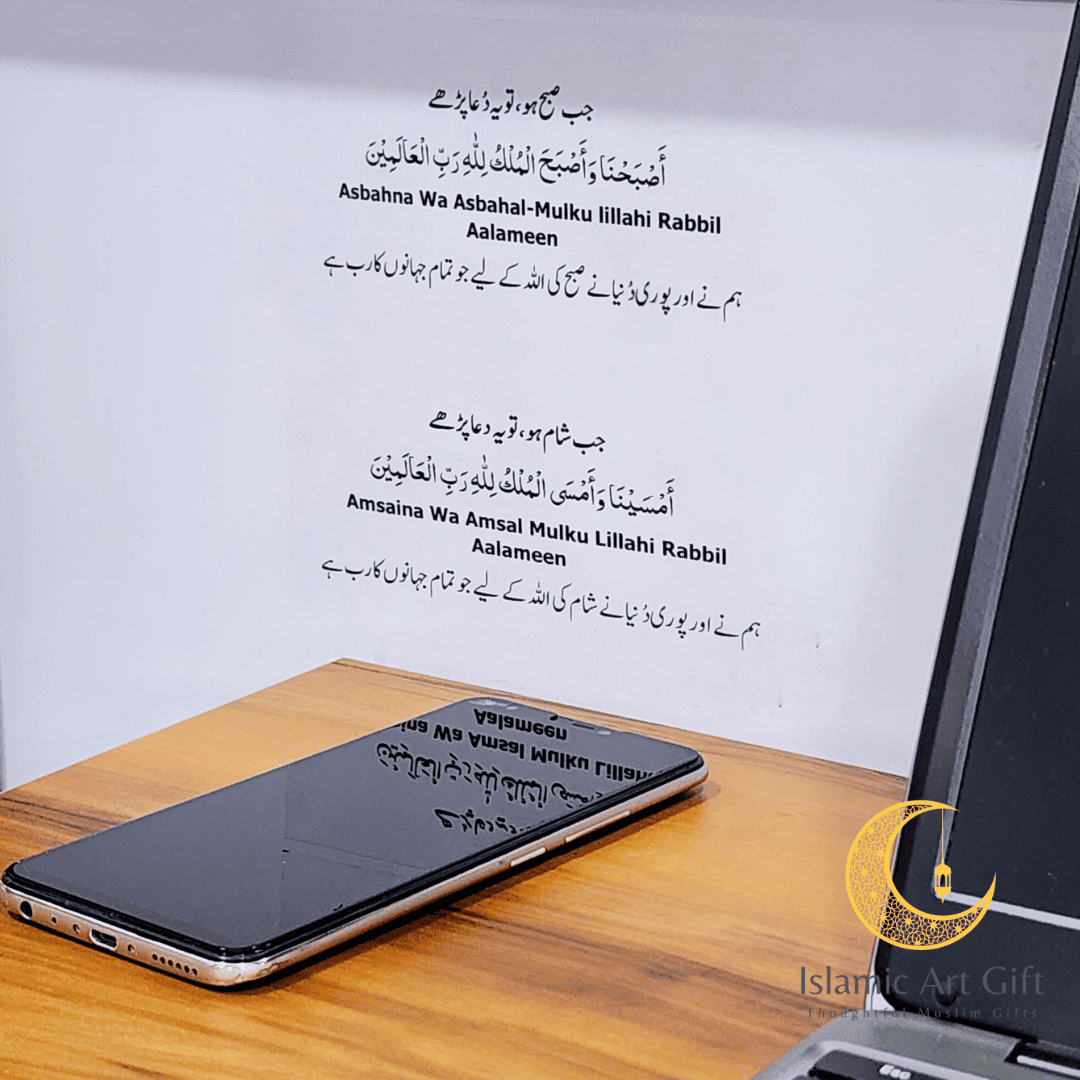 جب صبح ہو، تو یہ دُعا پڑھے
أَصْبَحْنَا وَأَصْبَحَ الْمُلْكُ لِلّٰهِ رَبِّ الْعَالَمِيْنَ
Asbahna Wa Asbahal-Mulku lillahi Rabbil
Aalameen
ہم نے اور پوری دُنیا نے صبح کی اللہ کے لیے جو تمام جہانوں کا رب ہے
جب شام ہو، تو یہ دعا پڑھے
أَمْسَيْنَا وَأَمْسَى الْمُلْكُ لِلّٰهِ رَبِّ الْعَالَمِيْنَ
Amsaina Wa Amsal Mulku Lillahi Rabbil
Aalameen
ہم نے اور پوری دُنیا نے شام کی اللہ کے لیے جو تمام جہانوں کا رب ہے
Islamic Art Gift
Thoughtful Muslim Gifts
esc